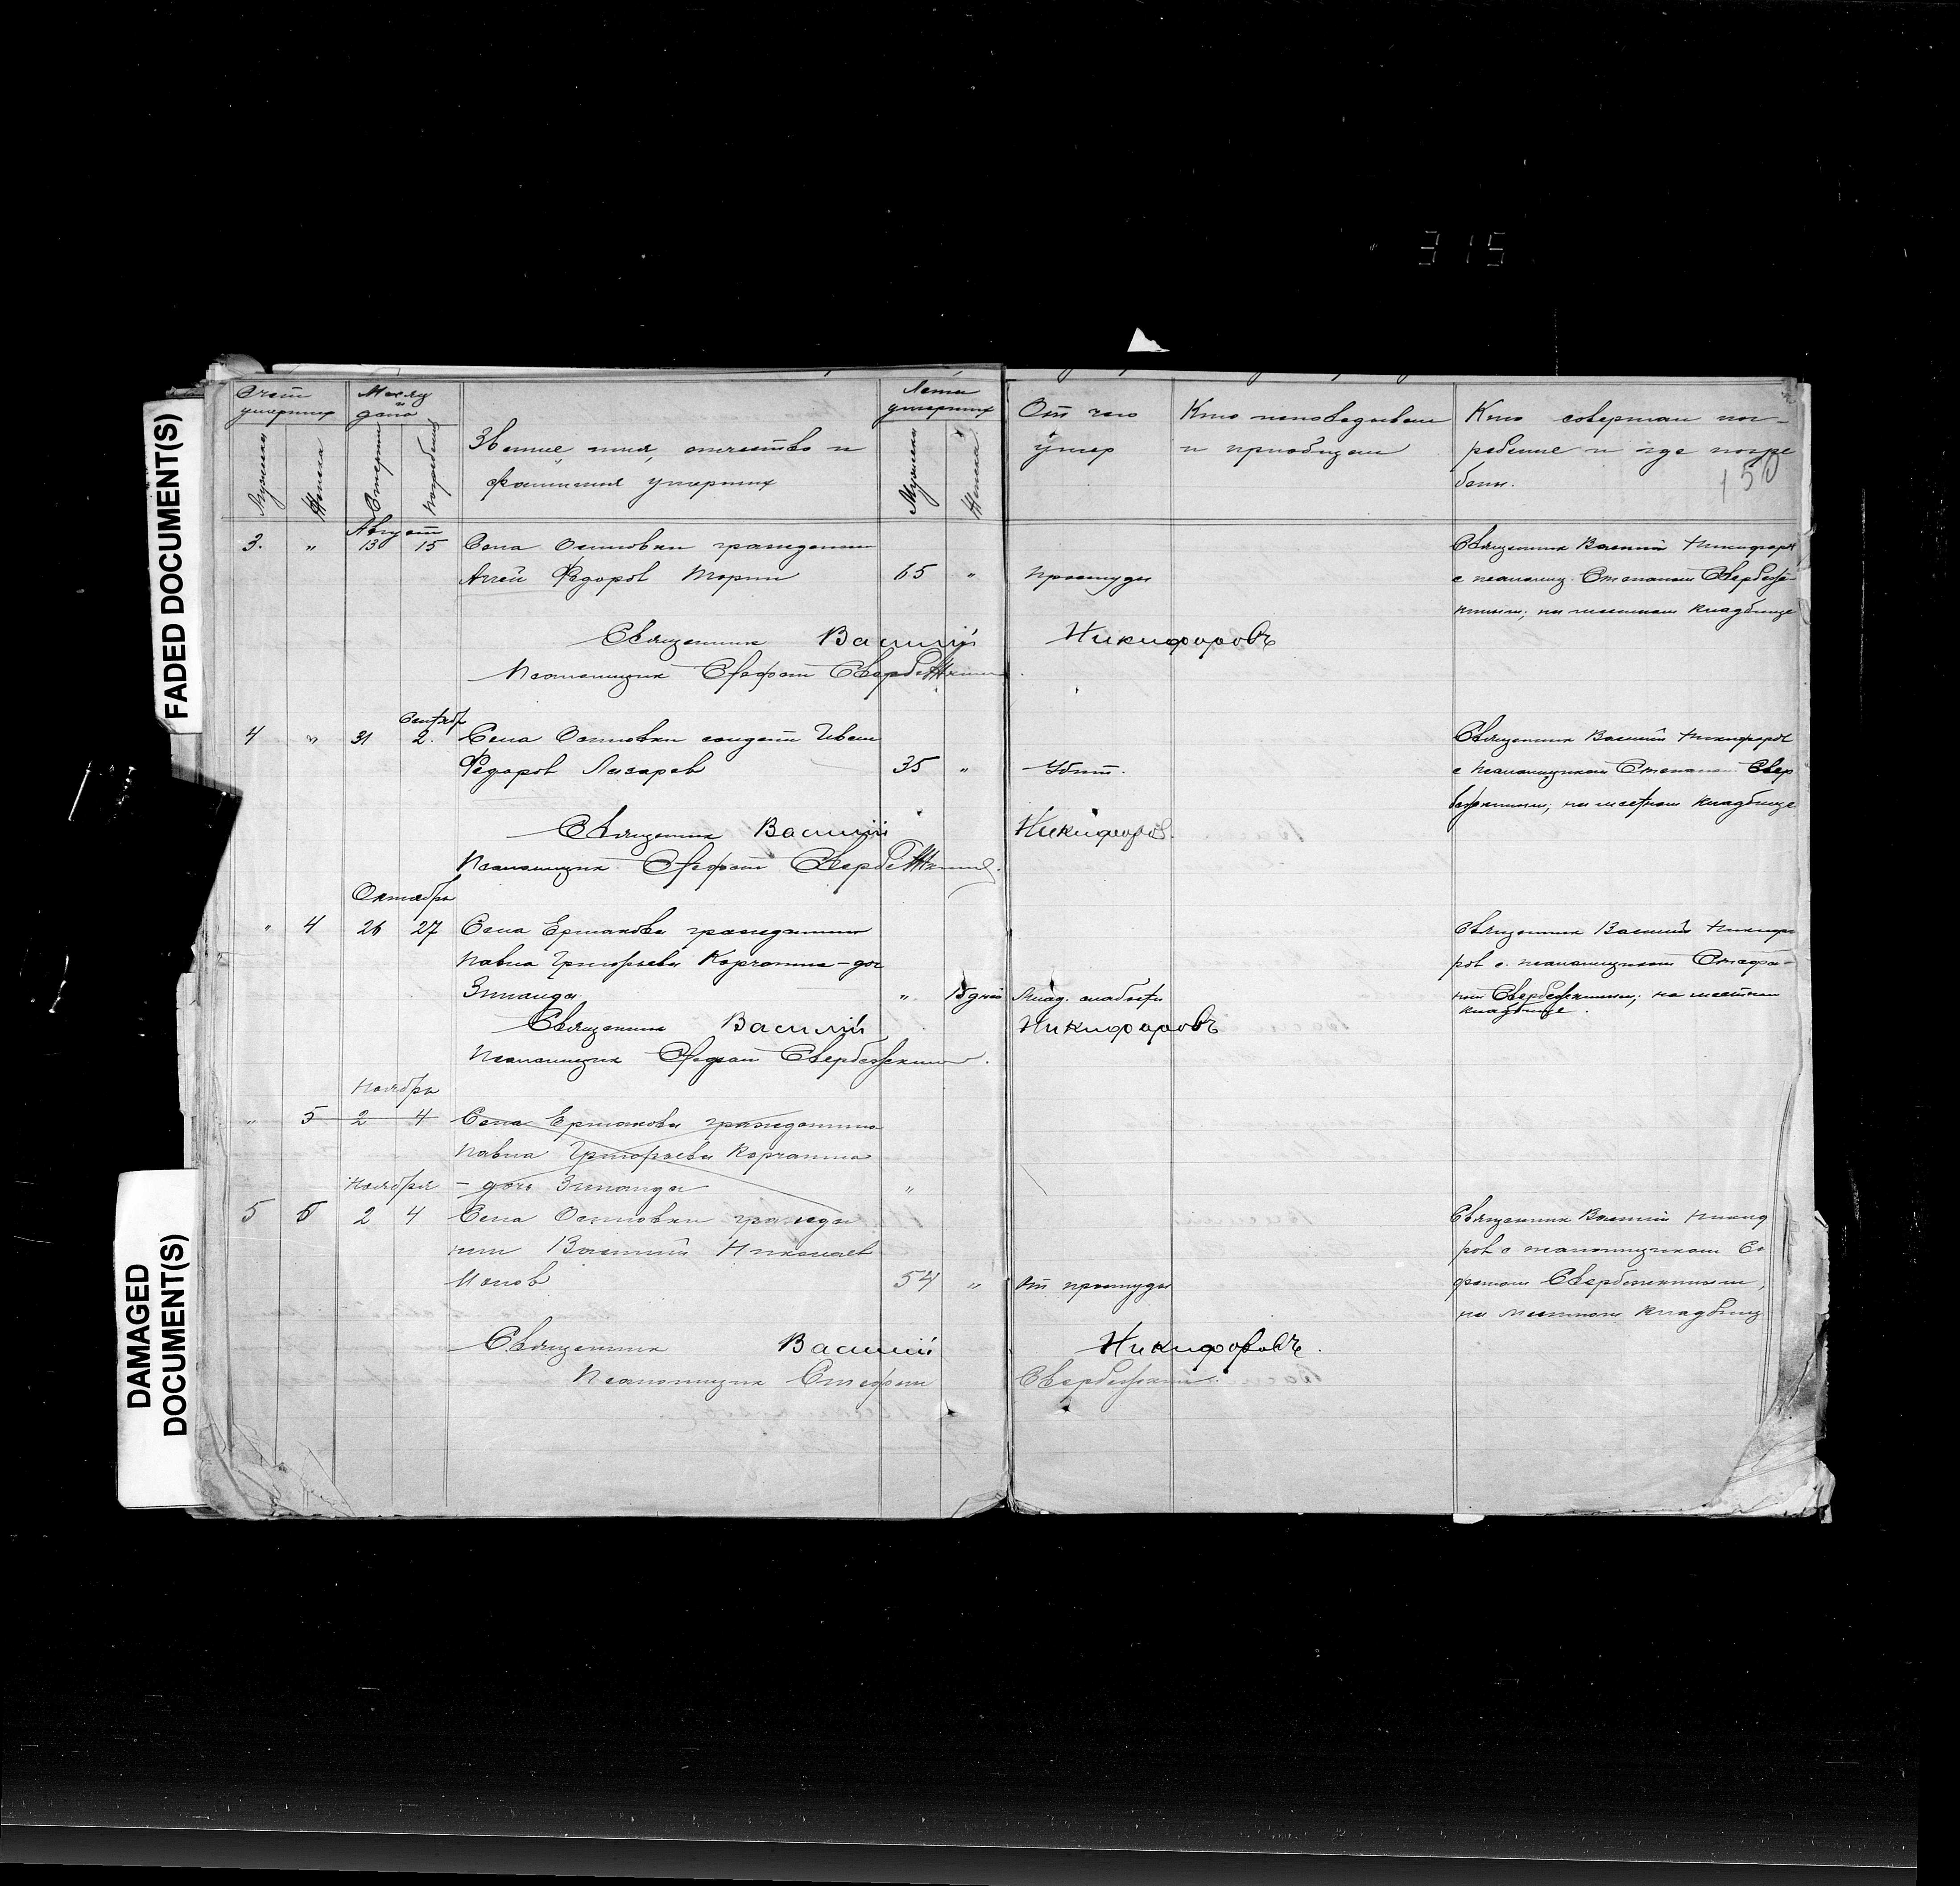 315
FADED DOCUMENT(S)
DAMAGED
DOCUMENT(S)
Счет
умерших
Месяц
и
дата
Мужска
Женска
Смерти
Погребения
Звание, имя, отчество и
фамилия умерших
Лета
умерших
Мужска
Женска
От чего
умер
Кто исповедывал
и приобщал
Кто совершал пог-
ребение и где погре
бены.
150
Август
3. " 13 15 Села Осиновки гражданин
Федоров 65 " Простуды
Священник Василий Никифоров
с псаломщ. Степаном Свербеж-
киным; на местном кладбище
Священник Василий Никифоровъ
Псаломщик Стефан Свербежкин
Сентябр
4 " 31 2. Села Осиновки солдат Иван
Федоров Лазарев 35 " Убит.
Священник Василий Никифоров
с псаломщиком Степаном Свер
бежкиным; на местном кладбище
Священник Василий Никифоров.
Псаломщик Стефан Свербежкин.
Октябрь
" 4 26 27 Села Ермаковки гражданина
Павла Григорьева Корчагина-доч
Зинаида " 15 дней Млад. слабости
Священник Василий Никифо
ров с псаломщиком Стефа-
ном Свербежкиным; на местном
кладбище.
Священник Василий Никифоровъ
Псаломщик Стефан Свербежкин.
Ноябрь
" 5 2 4 Села Ермаковки гражданина
Павла Григорьева Корчагина
- дочь Зинаида "
Ноября
5 5 2 4 Села Осиновки гражда
нин Василий Николаев
54 " От простуды
Священник Василий Никиф
ров с псаломщиком Сте
фаном Свербежкиным,
на местном кладбищ
Священник Василий Никифоровъ.
Псаломщик Стефан Свербежкин.